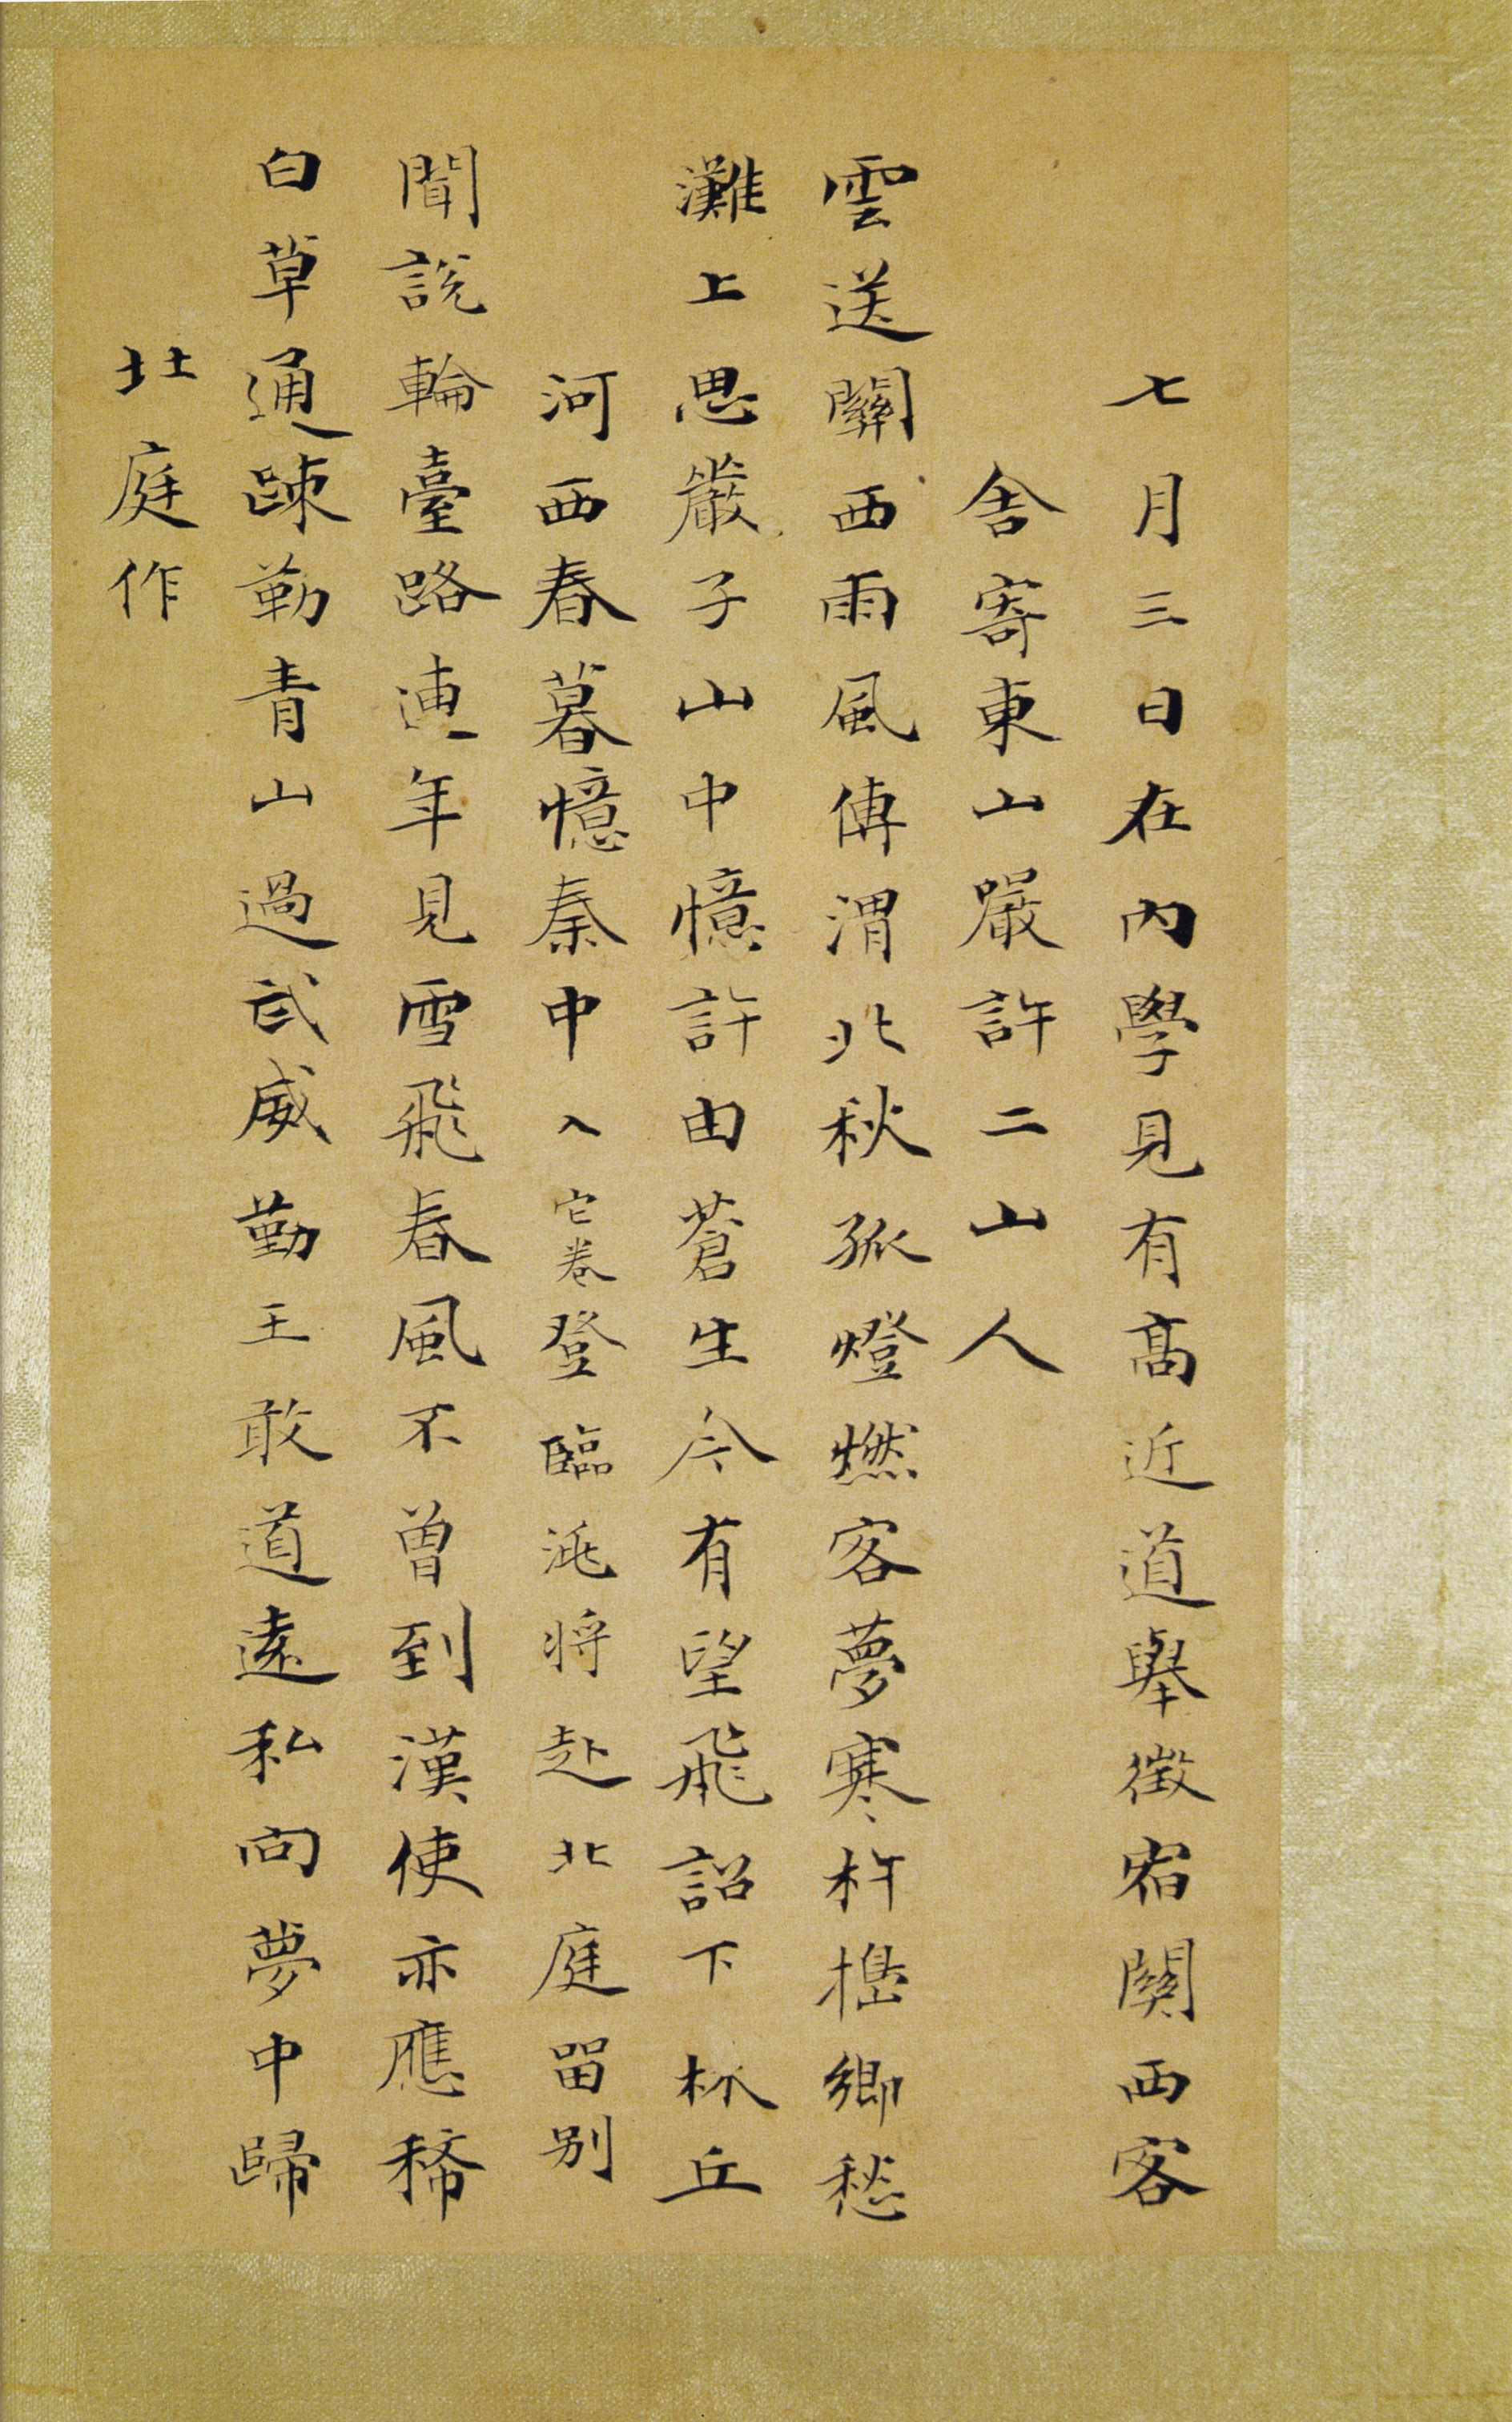 七月三日在內學見有高近道舉徵宿關西客
舍寄東山嚴許二山人
雲送關西雨風傳渭北秋孤燈燃客夢寒杵搗鄉愁
灘上思嚴子山中憶許由蒼生今有望飛詔下林丘
河西春暮憶秦中入它卷登臨洮將赴北庭留别
聞說輪臺路連年見雪飛春風不曾到漢使亦應稀
白草通疎勒青山過武威勤王敢道遠私向夢中歸
北庭作